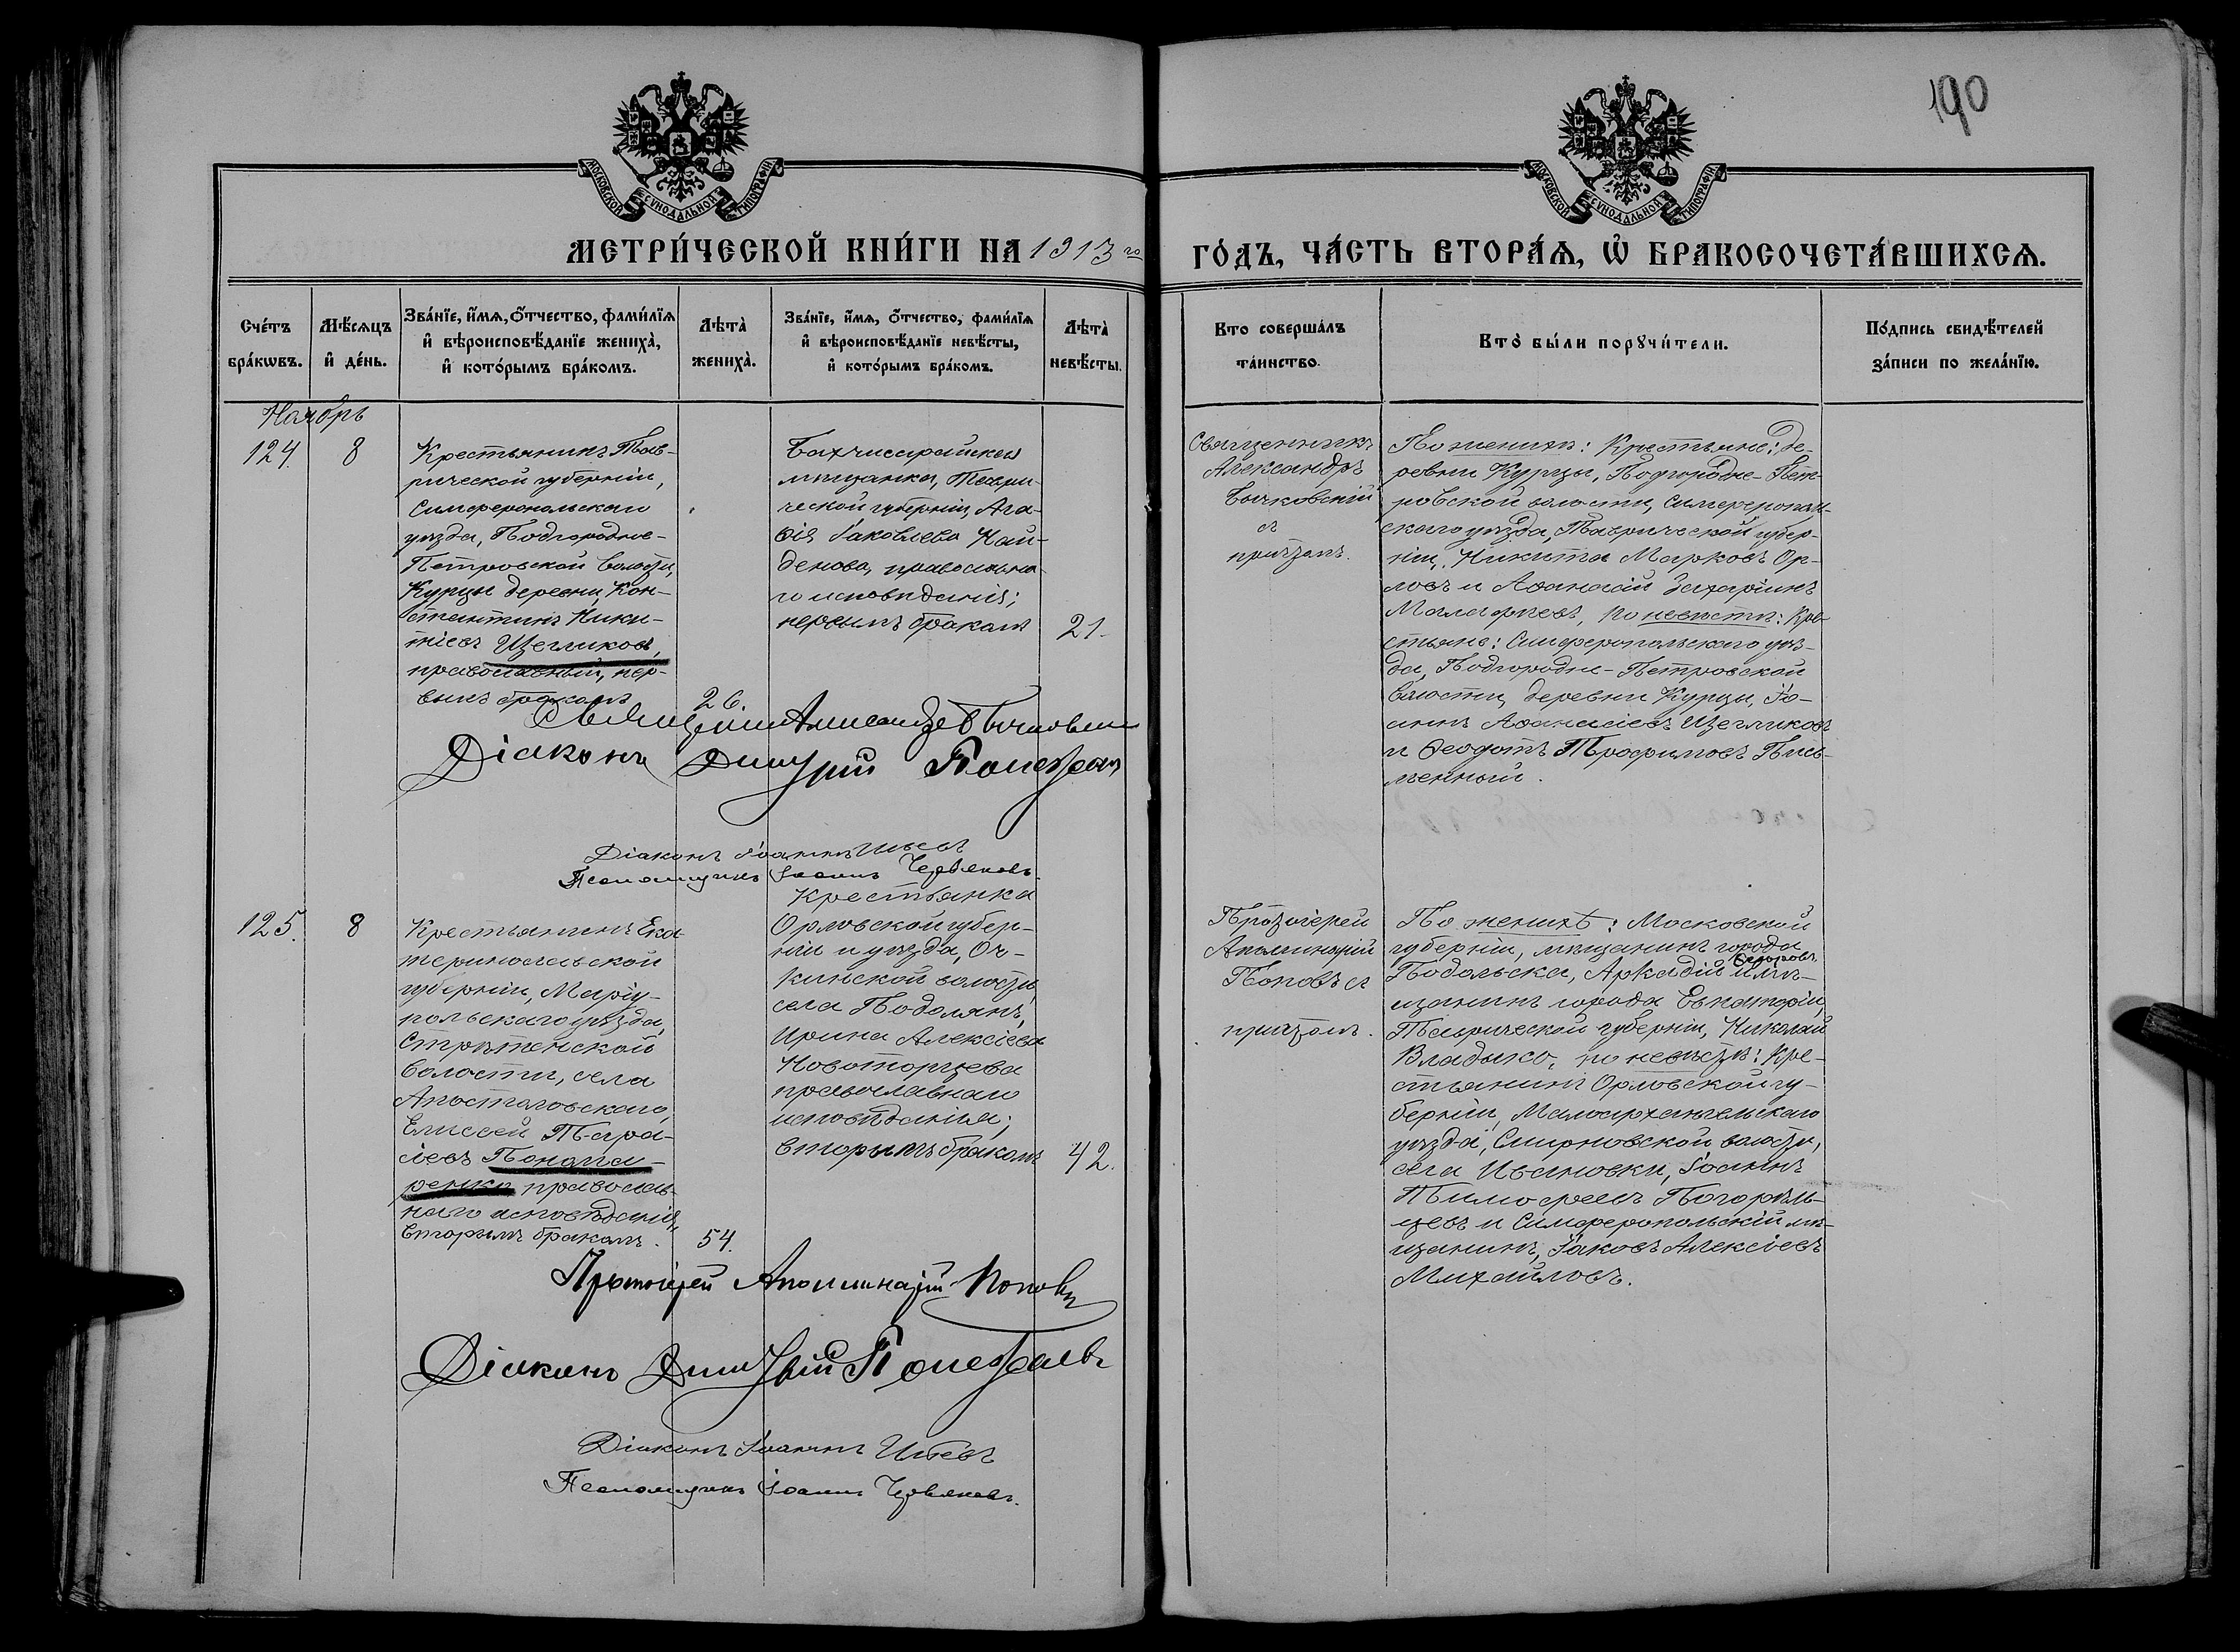 190
МОСКОВСКОЙ СѴНОДАЛЬНОЙ ТИПОГРАФІИ
МОСКОВСКОЙ СѴНОДАЛЬНОЙ ТИПОГРАФІИ
МЕТРИ́ЧЕСКОЙ КНИ́ГИ НА 1913 го
ГО́ДЪ, ЧА́СТЬ ВТОРА́Ѧ, Ѡ҆ БРАКОСОЧЕТА́ВШИХСѦ.
Сче́тъ
бра́кѡвъ.
Мѣ́сѧцъ
и҆ де́нь.
Зва́нїе, и҆́мѧ, ѻ҆́тчество, фами́лїѧ
и҆ вѣроисповѣ́данїе жениха̀,
и҆ кото́рымъ бра́комъ.
Лѣта̀
жениха̀.
Зва́нїе, и҆́мѧ, ѻ҆́тчество, фами́лїѧ
и҆ вѣроисповѣ́данїе невѣ́сты,
и҆ кото́рымъ бра́комъ.
Лѣта̀
невѣ́сты.
Кто соверша́лъ
та́инство.
Кто̀ бы́ли порꙋчи́тели.
По́дпись свидѣ́телей
за́писи по жела́нїю.
Ноябрь
124.
8
Крестьянинъ Тав-
рической губерніи,
Симферопольскаго
уѣзда, Подгородне-
Петровской волости,
Курцы деревни, Кон-
стантинъ Ники-
тіевъ Щегликовъ,
православный, пер-
вымъ бракомъ
26.
Бахчисарайская
мѣщанка, Таври-
ческой губерніи, Ага-
ѳія Іаковлева Най-
денова, православна-
го исповѣданія;
первымъ бракомъ
21.
Священникъ
Александръ
Бычковскій
съ
причтомъ.
По женихѣ: Крестьяне: де-
ревни Курцы, Подгородне-Пет-
ровской волости, Симферополь-
скаго уѣзда, Таврической губер-
ніи, Никита Марковъ Ор-
ловъ и Аѳанасій Захаріинъ
Малафѣевъ, по невѣстѣ: Кре-
стьяне: Симферопольскаго уѣз-
да, Подгородне-Петровской
волости, деревни Курцы, Іо-
аннъ Аѳанасіевъ Щегликовъ
и Ѳеодотъ Трофимовъ Пись-
менный.
Священникъ Александръ Бычковскій
Діаконъ Димитрій
Діаконъ Іоаннъ
Псаломщикъ Іоаннъ Червяковъ.
125.
8
Крестьянинъ Ека-
теринославской
губерніи, Маріу-
польскаго уѣзда,
Стрѣтенской
волости, села
Апостоловскаго,
Елисей Тара-
сіевъ Понома-
ренко православ-
наго исповѣданія,
вторымъ бракомъ.
54.
Крестьянка
Орловской губер-
ніи и уѣзда, Оч-
кинской волости,
села Подолянъ,
Ирина Алексіева
Новоторцева
православнаго
исповѣданія;
вторымъ бракомъ
42.
Протоіерей
Аполинарій
Поповъ съ
причтомъ.
По женихѣ: Московской
губерніи, мѣщанинъ города
Подольска, Аркадій Ѳедоровъ и мѣ-
щанинъ города Евпаторіи,
Таврической губерніи, Николай
Владыко, по невѣстѣ: Кре-
стьянинъ Орловской гу-
берніи, Малоархангельскаго
уѣзда, Смирновской волости,
села Ивановки, Іоаннъ
Тимофеевъ Погорѣль-
цевъ и Симферопольскій мѣ-
щанинъ, Іаковъ Алексіевъ
Михайловъ.
Протоіерей Аполинарій Поповъ
Діаконъ Димитрій
Діаконъ Іоаннъ
Псаломщикъ Іоаннъ Червяковъ.